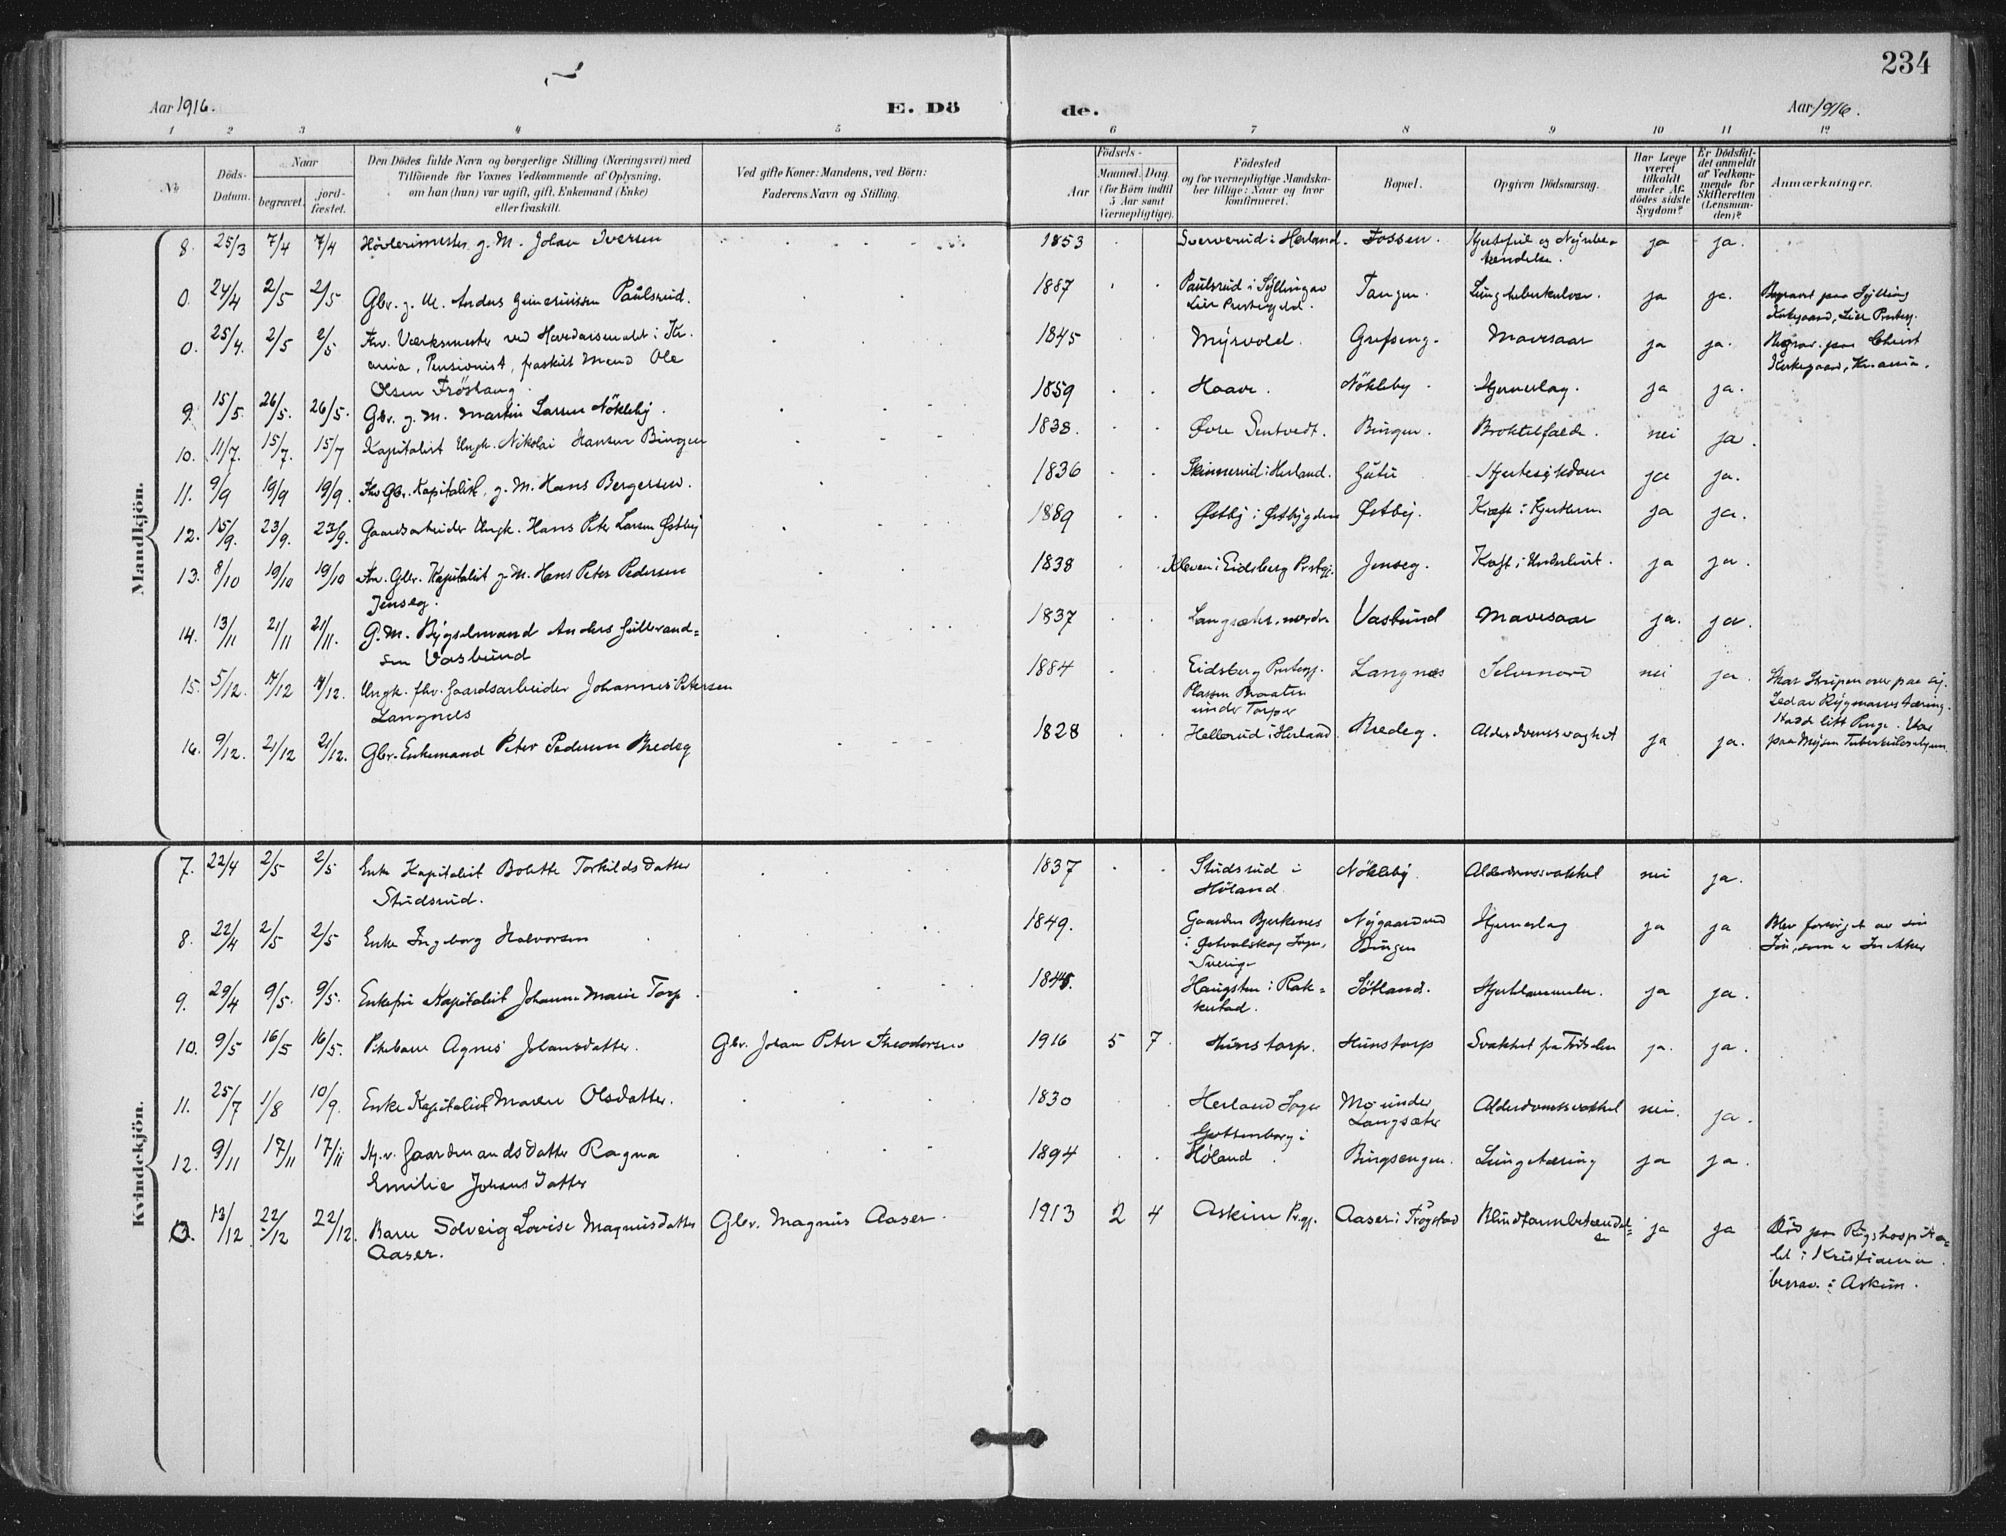 234
Aar 1916.
E. Dö
de.
Aar 1916.
1 2 3 4 5 6 7 8 9 10 11 12
No
Döds-
Datum.
Naar
begravet.
jord-
fæstet.
Den Dödes fulde Navn og borgerlige Stilling (Næringsvei) med
Tilföiende for Voxnes Vedkommende af Oplysning,
om han (hun) var ugift, gift, Enkemand (Enke)
eller fraskilt.
Ved gifte Koner: Mandens, ved Börn:
Faderens Navn og Stilling.
Födsels-
Aar
Maaned. Dag.
(for Börn indtil
5 Aar samt
Værnepligtige).
Födested
og for værnepligtige Mandska-
ber tillige: Naar og hvor
konfirmeret.
Bopæl.
Opgiven Dödsaarsag.
Har Læge
været
tilkaldt
under Af-
dödes sidste
Sygdom?
Er Dödsfal-
det anmeldt
af Vedkom-
mende for
Skifteretten
(Lensman-
den)?
Anmærkninger.
Mandkjön.
8. 25/3 7/4 7/4 Høvlerimester g. M. Johan Iversen 1853 Sververud i Herland. Fossen. Hjertefeil og Nyrebe-
tændelse. ja ja.
0. 24/4 2/5 2/5 Gbr. g. M. Anders Paulsrud. 1887 Paulsrud i Syllingen
Lier Prestegjeld. Tangen. Lungetuberkulose. ja ja. Begravet paa Sylling
Kirkegaard, Lier Prestegj.
0. 25/4. 2/5 2/5 Fhv. Værksmester ved Hovedarsenalet i Kr.
ania, Pensionist, fraskilt Mand Ole
Olsen Frøshaug. 1845 Myrvold. Grefseng. Mavesaar ja ja. Begrav. paa Christ
Kirkegaard, Kr.ania.
9. 15/5. 26/5. 26/5. Gbr. g. M. Martin Larsen Nökleby. 1859 Haave. Nökleby. Hjerneslag. ja ja.
10. 11/7. 15/7. 15/7 Kapitalist Ungk. Nikolai Hansen Bingen 1838. Øvre Sentvedt. Bingen. Broktilfælde. nei ja.
11. 9/9 19/9 19/9. Fhv Gbr. Kapitalist, g. M. Hans Bergersen. 1836 Skinnerud i Herland. Gutu Hjertesykdom ja ja.
12. 15/9. 23/9. 23/9. Gaardsarbeider Ungk. Hans Peter Larsen Østby 1889 Østby i Østbygden Østby. Kræft i Kjertlerne. ja ja.
13. 8/10 19/10 19/10 Fhv. Gbr. Kapitalist g. M. Hans Peter Pedersen
Jenseg. 1838 Kleven i Eidsberg Prstgj. Jenseg. Kræft i Underlivet. ja ja.
14. 13/11 21/11 21/11. G. M. Bygselmand Anders Gulbrand-
sen Vasbund 1837 Langsæter, nordre Vasbund Mavesaar ja. ja.
15. 5/12. 17/12 17/12. Ungk. fhv. Gaardsarbeider Johannes Petersen
Langnes 1884 Eidsberg Prestegj.
Plassen Braaten
under Torper Langnæs Selvmord nei ja. Skar Strupen over paa sig.
Led av Rygmarvstæring.
Hadde litt Penge. Var
paa Mysen Tuberkulosehjem.
16. 9/12. 21/12 21/12. Gbr. Enkemand Peter Pedersen Bredeg 1828 Hellerud i Herland Bredeg. Alderdomssvaghet ja ja.
Kvindekjön.
7. 22/4 2/5 2/5 Enke Kapitalist Bolette Torkildsdatter
Studsrud. 1837 Studsrud i
Høland. Nökleby. Alderdomssvakhet nei ja.
8. 22/4 2/5 2/5 Enke Ingeborg Halvorsen 1849. Gaarden Bjerkenes
i Østvalskog Sogn,
Sverige Nygaard ved
Bingen Hjerneslag ja ja Blev forsørget av sin
Søn, som er Snekker
9. 29/4 9/5. 9/5. Enkefru Kapitalist Johanne Marie Torp. Haugsten i Rak-
kestad. Søtland. Hjertelammelse. ja ja.
10. 9/5 16/5 16/5. Pikebarn Agnes Johansdatter. Gbr. Johan Peter Theodorsen 1916 5 7. Hunstorp. Hunstorp Svakhet fra Fødselen ja. ja.
11. 25/7 1/8 10/9. Enke Kapitalist Maren Olsdatter. 1830 Herland Sogn Mo under
Langsæter Alderdomssvakhet nei. ja.
12. 9/11 17/11 17/11 Ug. v. Gaardmandsdatter Ragna
Emilie Johansdatter 1894 Gottenborg i
Høland. Bingsengen. Lungetæring ja ja.
0. 13/12 22/12 22/12. Barn Solveig Lovise Magnusdatter
Aaser. Gbr. Magnus Aaser. 1913 2 4 Askim Prgj. Aaser i Trøgstad Blindtarmbetændel-
se ja ja Død paa Rigshospita-
let i Kristiania.
begrav. i Askim.